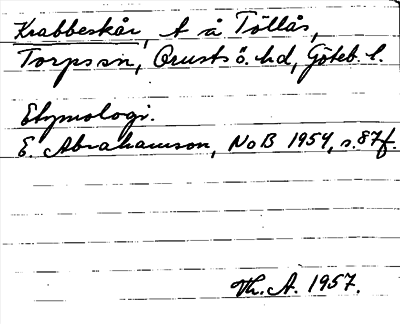 Krabbeskår, t å Töllås,
Torps sn, Orusts ö. hd, Göteb. l.
Etymologi.
E. Abrahamson, NoB 1954, s. 87f.
Th. A. 1957.